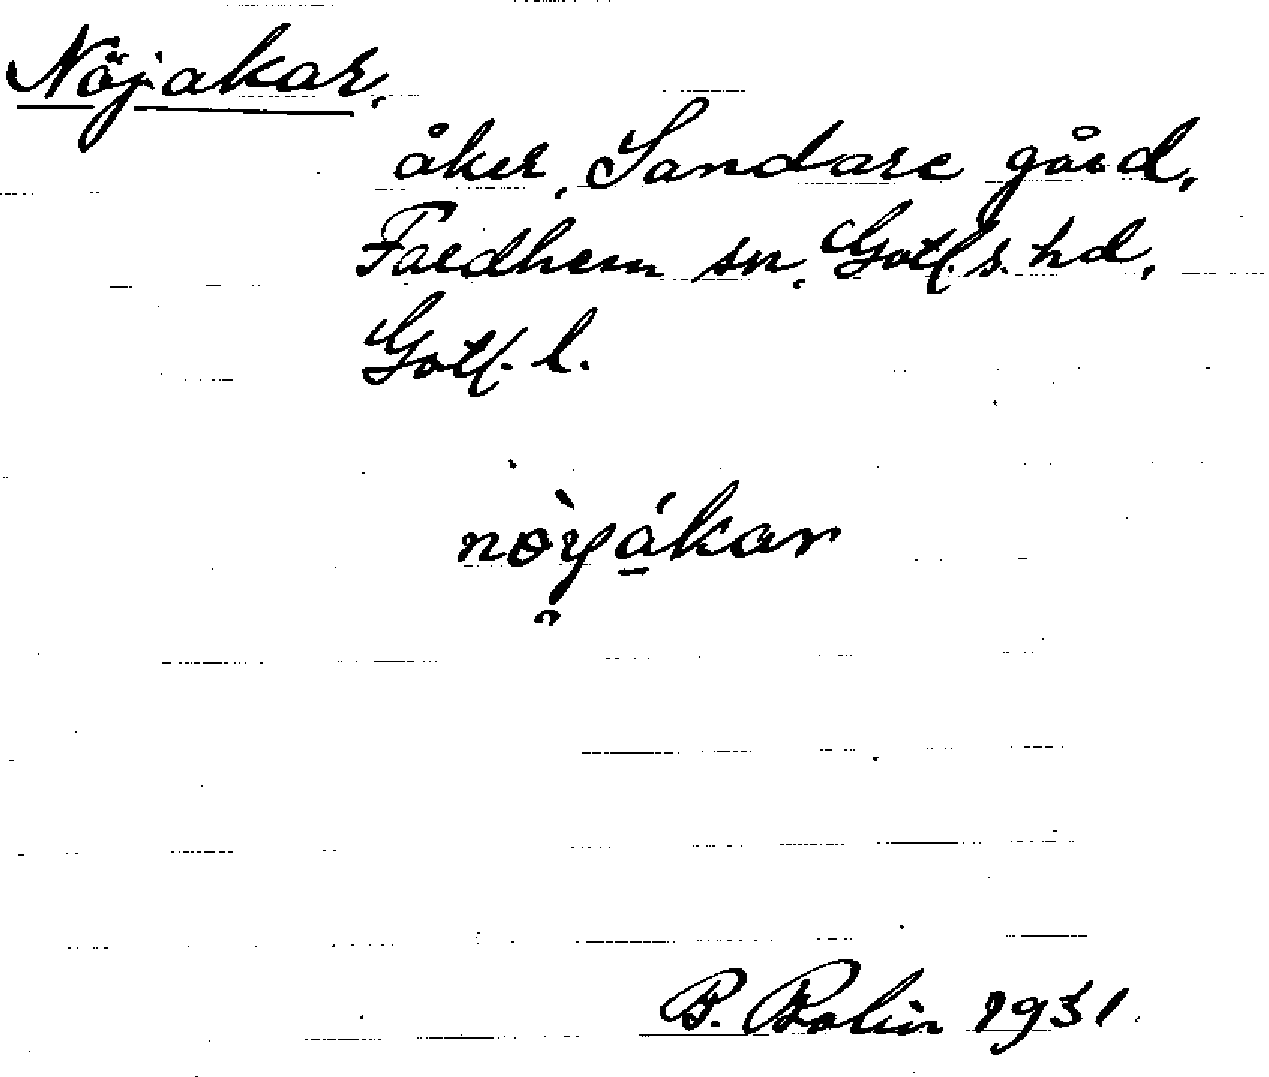 Nöjakar,
åker, Sandare gård,
Fardhem sn, Gotl. s. hd,
Gotl. l.
nòyákar
B. Bolin 1931